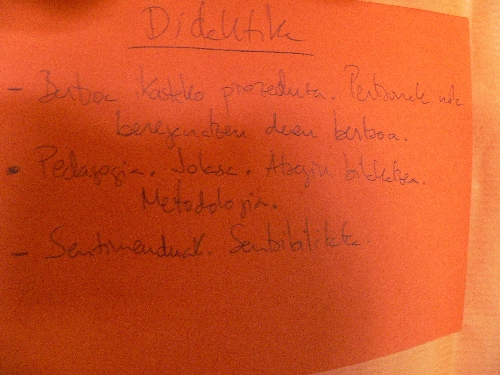 Didaktika
- Bertsoa ikasteko prozedura. Pertsonek nola
bereganatzen duen bertsoa.
- Pedagogia. Jolasa. Atsegin bilatzea.
Metodologia.
- Sentimenduak. Sentsibilitatea.